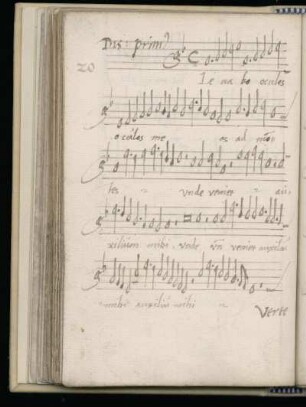 Dis: prim9
20
Le ua bo oculos
oculos me os ad mon
tes unde veniet au
xilium mihi, unde veniet auxiliu
mihi auxiliu mihi
Verte